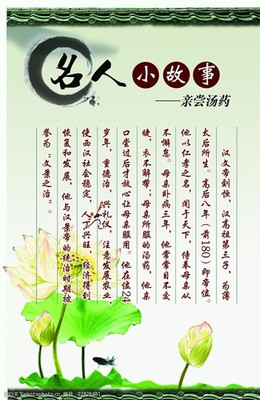 名人小故事
——亲尝汤药
汉文帝刘恒，汉高祖第三子，为薄
太后所生。高后八年（前180）即帝位。
他以仁孝之名，闻于天下，侍奉母亲从
不懈怠。母亲卧病三年，他常常目不交
睫，衣不解带；母亲所服的汤药，他亲
口尝过后才放心让母亲服用。他在位24
年，重德治，兴礼仪，注意发展农业，
使西汉社会稳定，人丁兴旺，经济得到
恢复和发展，他与汉景帝的统治时期被
誉为“文景之治”。